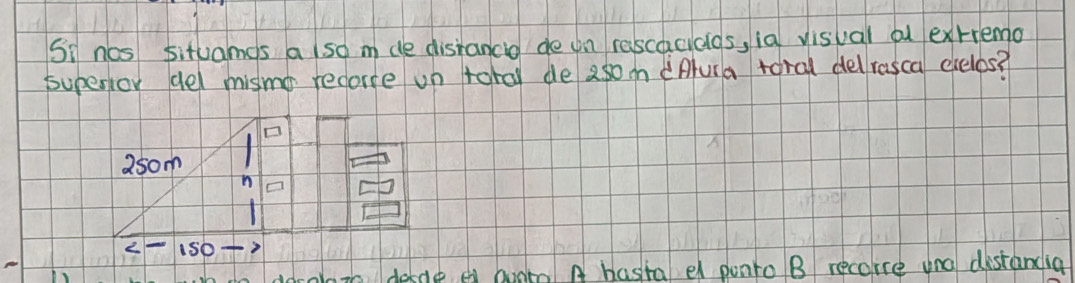 Si nos situamos a 150 m de distancia de un rascacielos, la visual al extremo
superior del mismo recorre un total de 250 m ¿Altura total del rasca cielos?
250m
h
<- 150 ->
desde el punto A hasta el punto B recorre una distancia